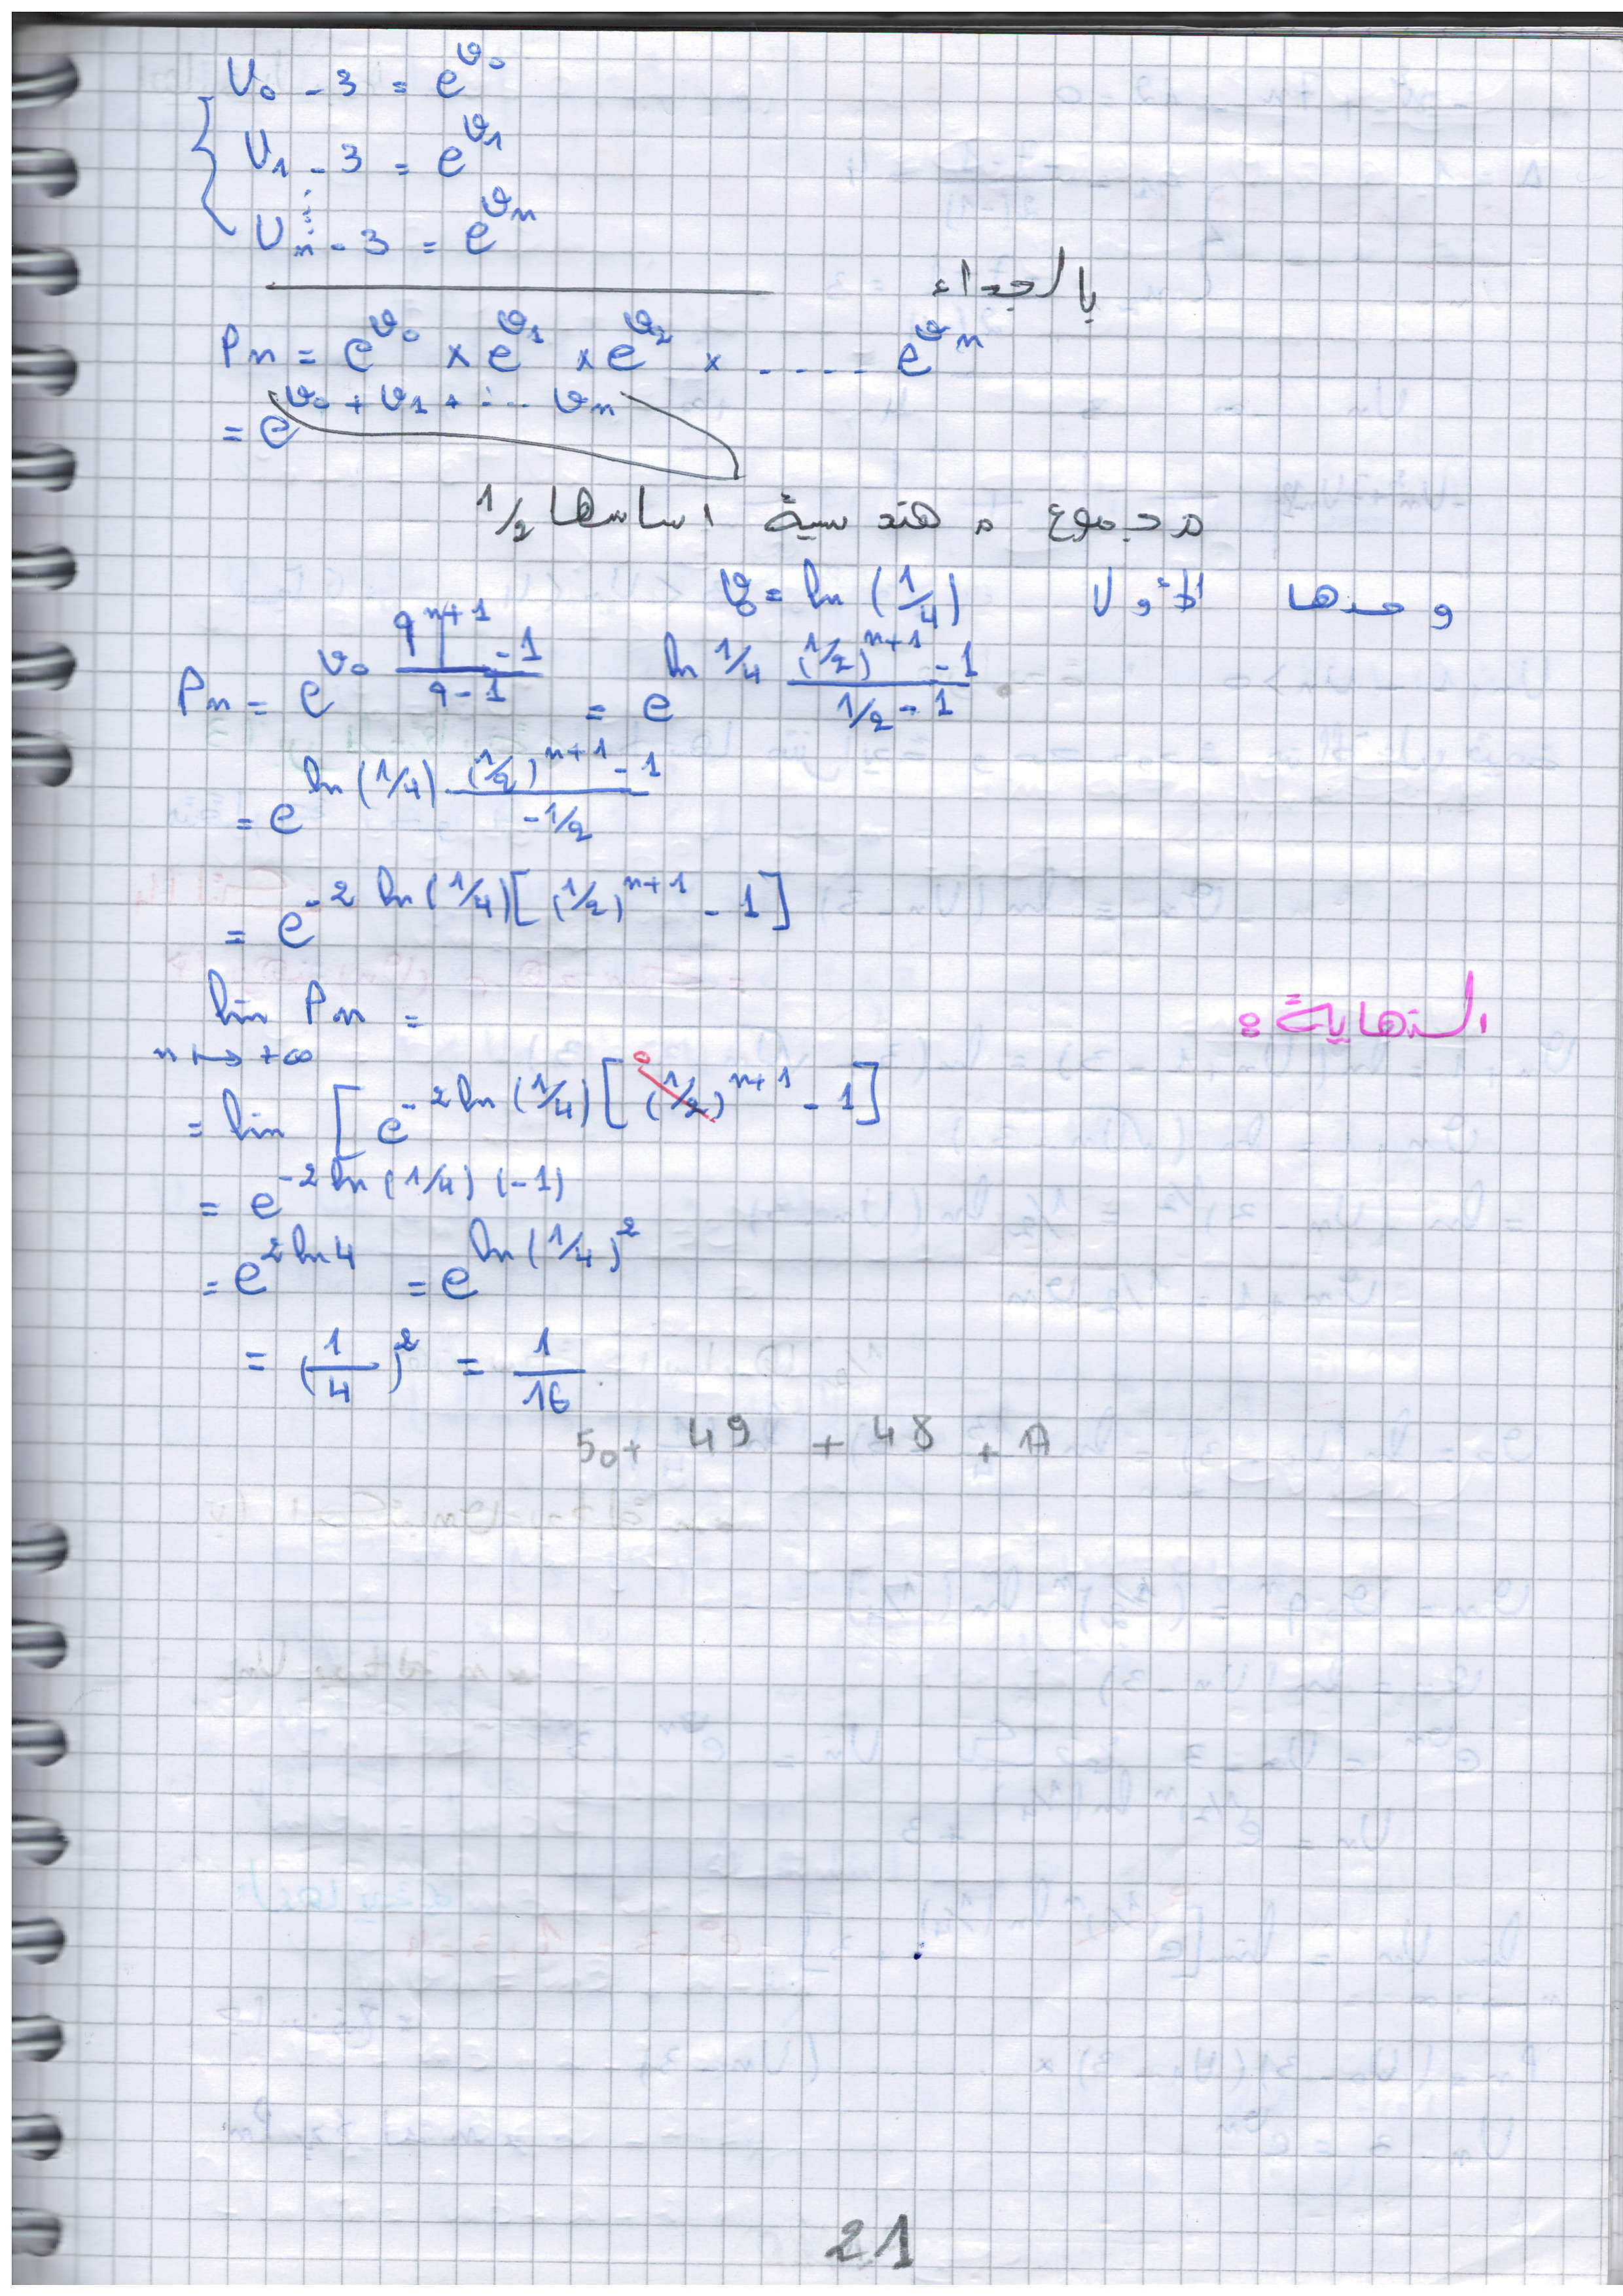 U₀ - 3 = e^{v₀}
U₁ - 3 = e^{v₁}
⋮
Uₙ - 3 = e^{vₙ}
بالجداء
Pₙ = e^{v₀} × e^{v₁} × e^{v₂} × ..... e^{vₙ}
= e^{v₀ + v₁ + .... vₙ}
مجموع م هندسية اساسها 1/2
وحدها الأول v₀ = ln (1/4)
Pₙ = e^{v₀ (q^{n+1} - 1)/(q - 1)} = e^{ln 1/4 ((1/2)^{n+1} - 1)/(1/2 - 1)}
= e^{ln (1/4) · ((1/2)^{n+1} - 1)/(-1/2)}
= e^{-2 ln (1/4) [(1/2)^{n+1} - 1]}
النهاية :
lim Pₙ =
n ↦ +∞
= lim [ e^{-2 ln (1/4) [(1/2)^{n+1} - 1]} 0
= e^{-2 ln (1/4) (-1)}
= e^{2 ln 4} = e^{ln (1/4)²}
= (1/4)² = 1/16
50 + 49 + 48 + A
21